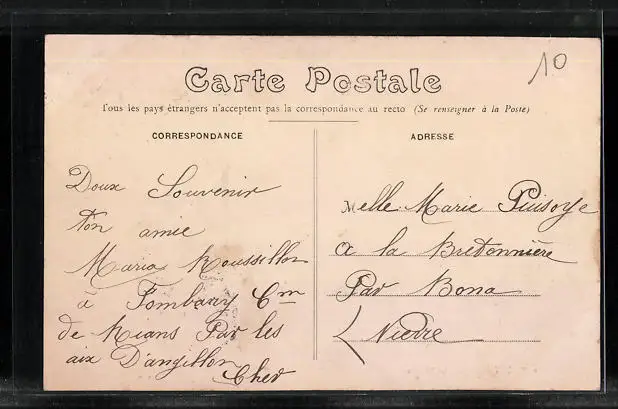 10
Carte Postale
Tous les pays étrangers n'acceptent pas la correspondance au recto (Se renseigner à la Poste)
CORRESPONDANCE
Doux Souvenir
Ton amie
Maria Roussillon
à Fombary Cm
de Rians Par les
aix D'angillon
Cher
ADRESSE
Melle Marie Puisoye
a la Bretonnière
Par Bona
Nievre